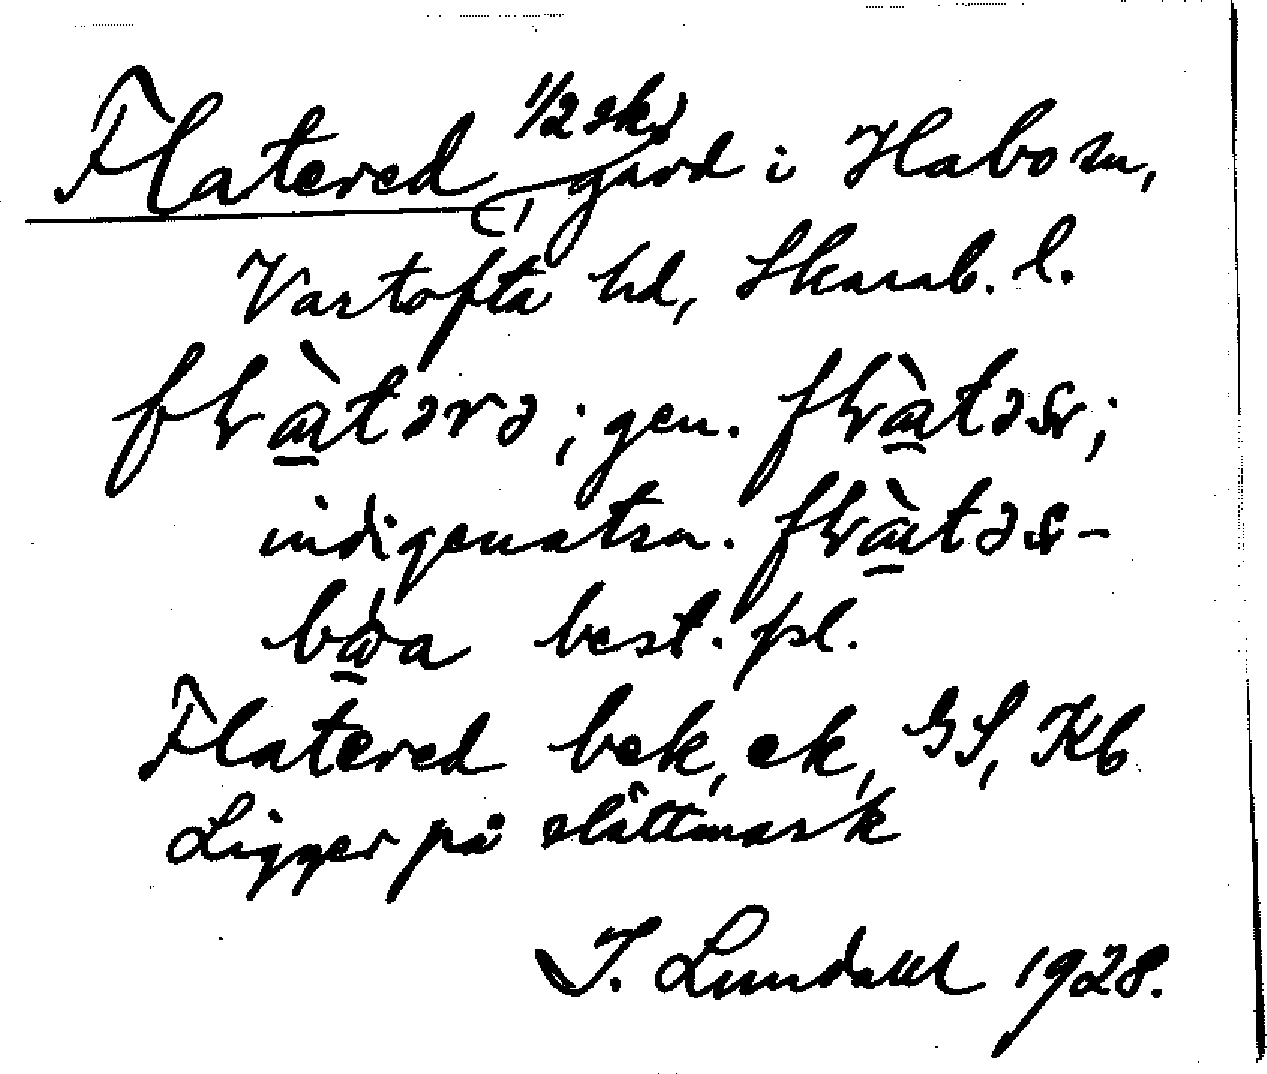 Flatered, 1/2 sk, gård i Habo sn,
Vartofta hd, Skarab. l.
flàtərə; gen. flàtəs;
indigenatsn. flàtəs-
bòa best. pl.
Flatered bek, ek, GS, Kb
Ligger på slättmark
I. Lundahl 1928.